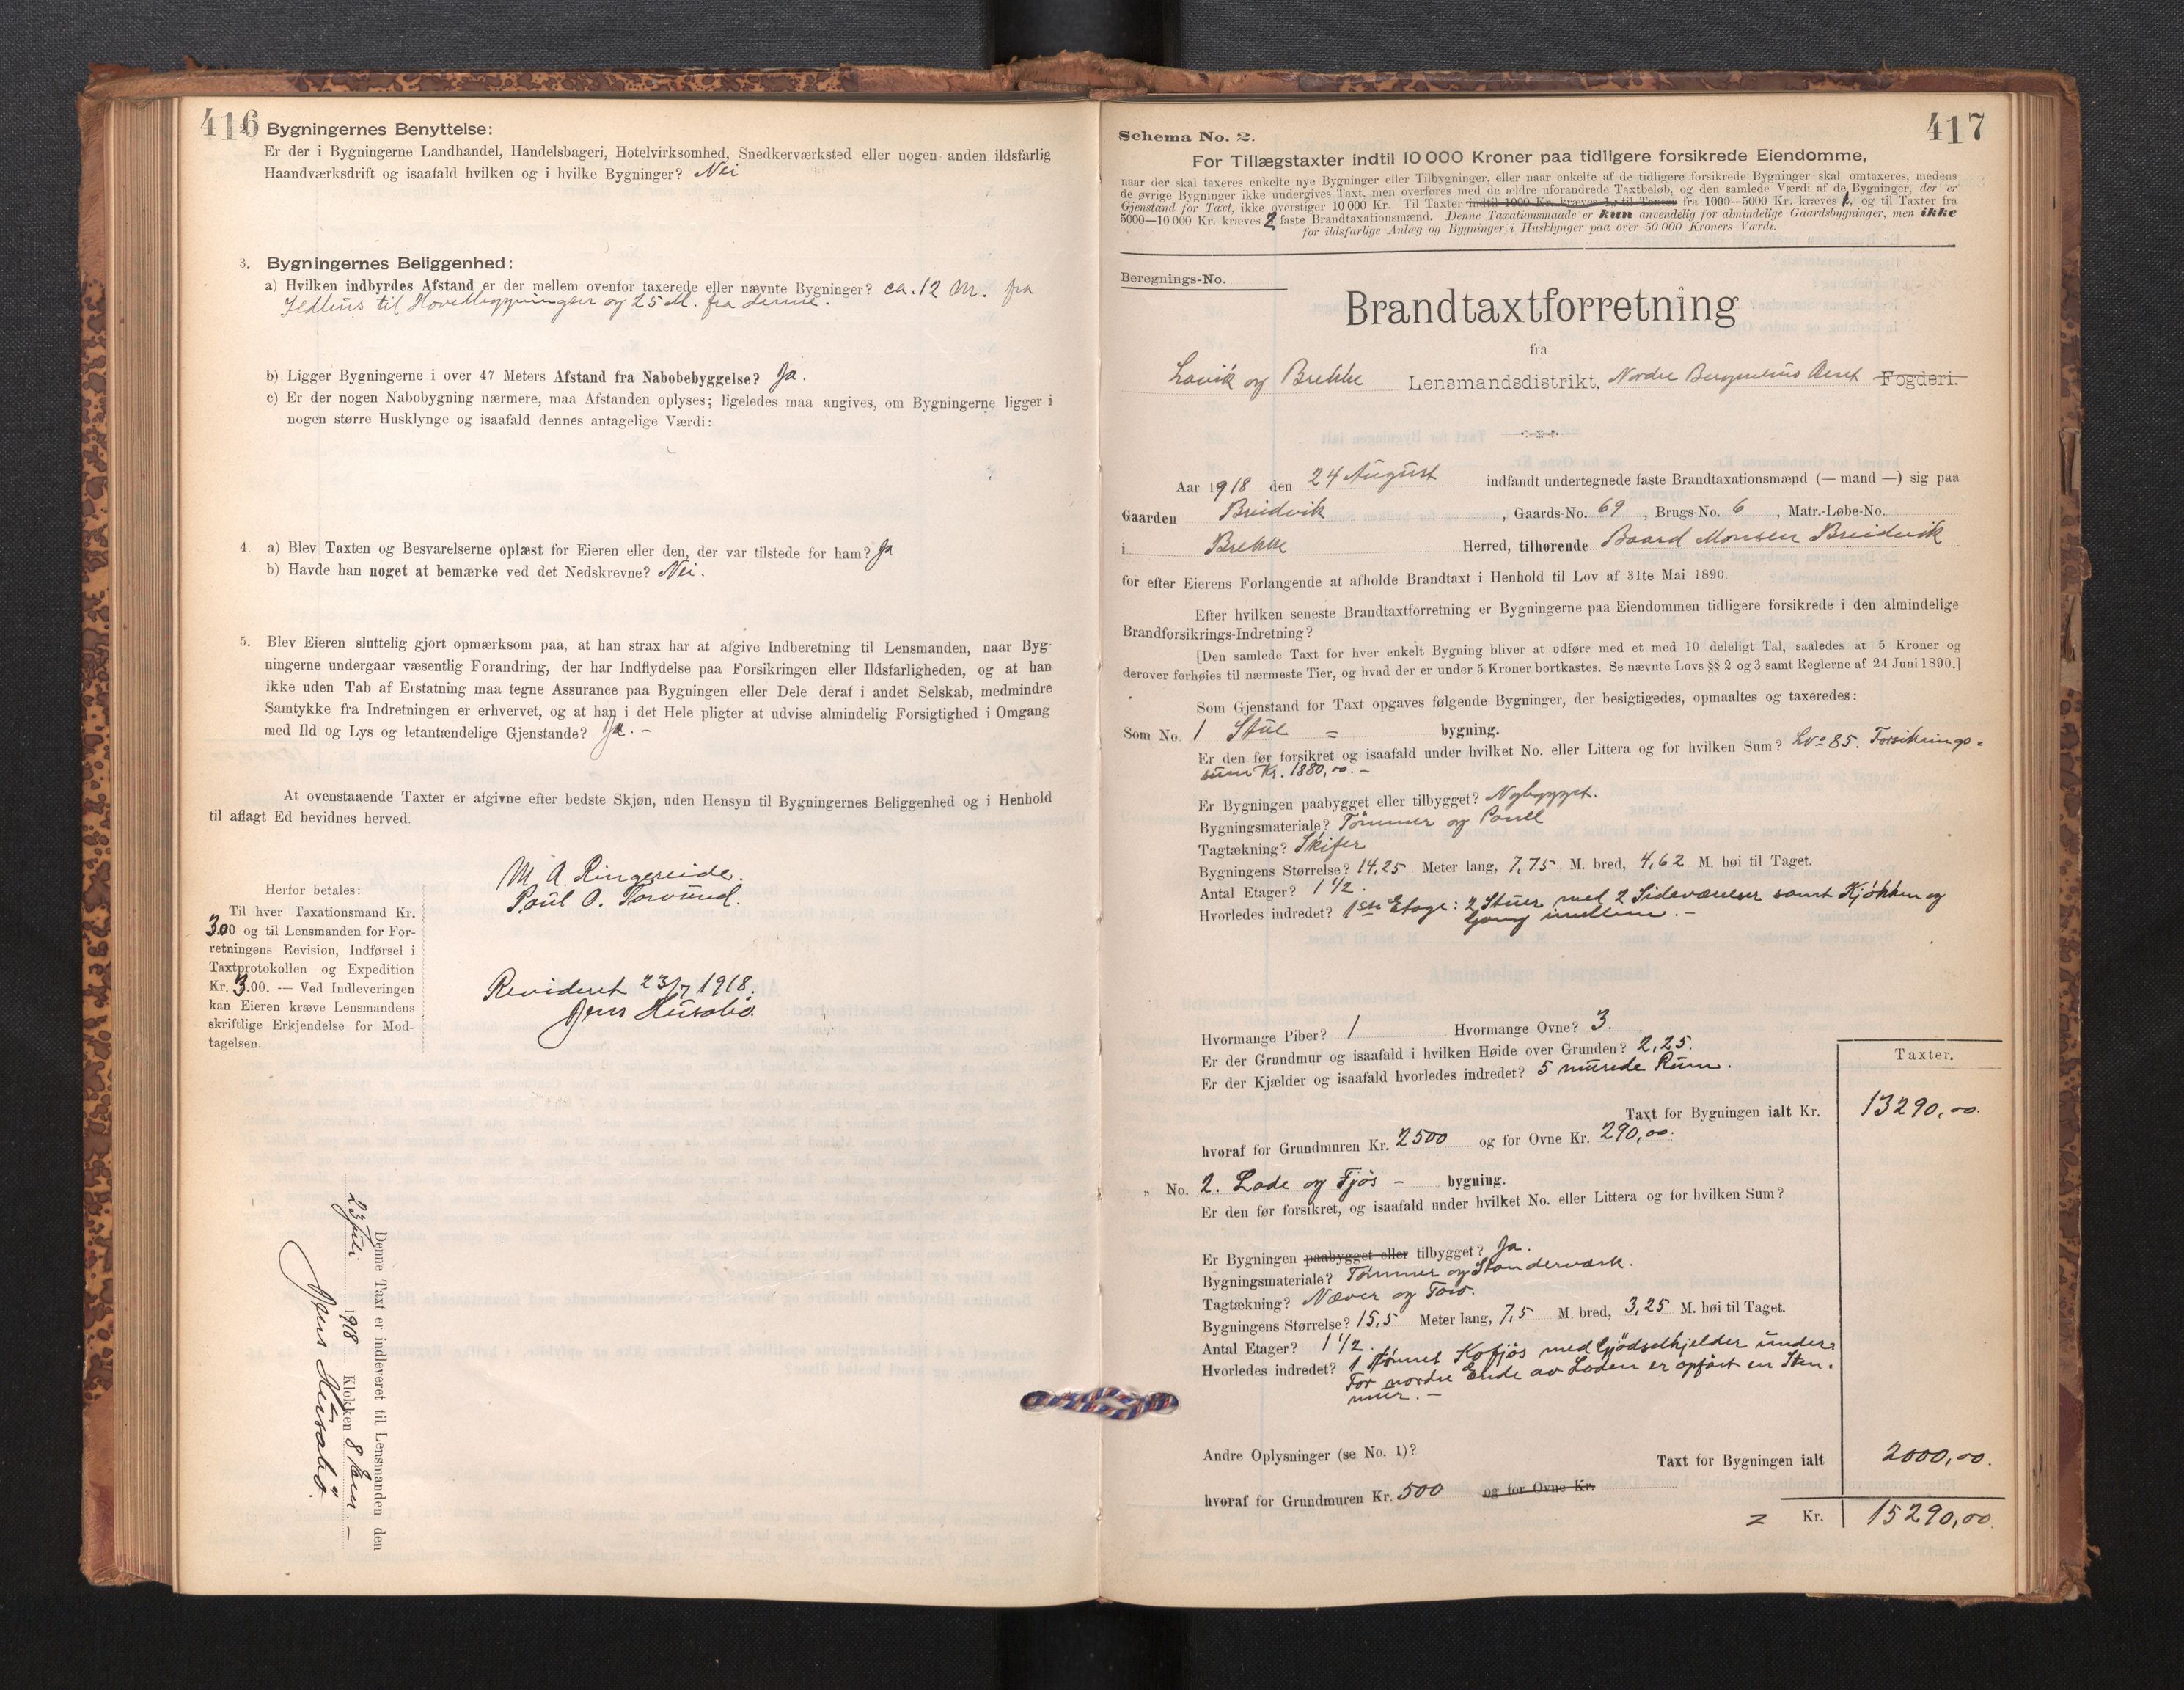 416
Bygningernes Benyttelse:
Er der i Bygningerne Landhandel, Handelsbageri, Hotelvirksomhed, Snedkerværksted eller nogen anden ildsfarlig
Haandværksdrift og isaafald hvilken og i hvilke Bygninger? Nei
3. Bygningernes Beliggenhed:
a) Hvilken indbyrdes Afstand er der mellem ovenfor taxerede eller nævnte Bygninger? ca. 12 M. fra
Ildhus til Hovedbygningen og 25 M. fra denne.
b) Ligger Bygningerne i over 47 Meters Afstand fra Nabobebyggelse? Ja.
c) Er der nogen Nabobygning nærmere, maa Afstanden oplyses; ligeledes maa angives, om Bygningerne ligger i
nogen større Husklynge og isaafald dennes antagelige Værdi:
4. a) Blev Taxten og Besvarelserne oplæst for Eieren eller den, der var tilstede for ham? Ja
b) Havde han noget at bemærke ved det Nedskrevne? Nei.
5. Blev Eieren sluttelig gjort opmærksom paa, at han strax har at afgive Indberetning til Lensmanden, naar Byg-
ningerne undergaar væsentlig Forandring, der har Indflydelse paa Forsikringen eller Ildsfarligheden, og at han
ikke uden Tab af Erstatning maa tegne Assurance paa Bygningen eller Dele deraf i andet Selskab, medmindre
Samtykke fra Indretningen er erhvervet, og at han i det Hele pligter at udvise almindelig Forsigtighed i Omgang
med Ild og Lys og letantændelige Gjenstande? Ja. -
At ovenstaaende Taxter er afgivne efter bedste Skjøn, uden Hensyn til Bygningernes Beliggenhed og i Henhold
til aflagt Ed bevidnes herved.
M. A. Ringereide.
Poul O. Torvund.
Herfor betales:
Til hver Taxationsmand Kr.
3.00 og til Lensmanden for For-
retningens Revision, Indførsel i
Taxtprotokollen og Expedition
Kr. 3.00. — Ved Indleveringen
kan Eieren kræve Lensmandens
skriftlige Erkjendelse for Mod-
tagelsen.
Revideret 23/7 1918.
Jens Husabø.
Denne Taxt er indleveret til Lensmanden den
23 Juli 1918 Klokken 8 Em. -
Jens Husabø.
417
Schema No. 2.
For Tillægstaxter indtil 10 000 Kroner paa tidligere forsikrede Eiendomme,
naar der skal taxeres enkelte nye Bygninger eller Tilbygninger, eller naar enkelte af de tidligere forsikrede Bygninger skal omtaxeres, medens
de øvrige Bygninger ikke undergives Taxt, men overføres med de ældre uforandrede Taxtbeløb, og den samlede Værdi af de Bygninger, der er
Gjenstand for Taxt, ikke overstiger 10 000 Kr. Til Taxter indtil 1000 Kr. kræves 1, til Taxter fra 1000—5000 Kr. kræves 1, og til Taxter fra
5000—10 000 Kr. kræves 2 faste Brandtaxationsmænd. Denne Taxationsmaade er kun anvendelig for almindelige Gaardsbygninger, men ikke
for ildsfarlige Anlæg og Bygninger i Husklynger paa over 50 000 Kroners Værdi.
Beregnings-No.
Brandtaxtforretning
fra
Lavik og Brekke Lensmandsdistrikt, Nordre Bergenhus Amt Fogderi.
Aar 1918 den 24 August indfandt undertegnede faste Brandtaxationsmænd (— mand —) sig paa
Gaarden Breidvik, Gaards-No. 69, Brugs-No. 6, Matr.-Løbe-No.
i Brekke Herred, tilhørende Baard Monsen Breidvik
for efter Eierens Forlangende at afholde Brandtaxt i Henhold til Lov af 31te Mai 1890.
Efter hvilken seneste Brandtaxtforretning er Bygningerne paa Eiendommen tidligere forsikrede i den almindelige
Brandforsikrings-Indretning?
[Den samlede Taxt for hver enkelt Bygning bliver at udføre med et med 10 deleligt Tal, saaledes at 5 Kroner og
derover forhøies til nærmeste Tier, og hvad der er under 5 Kroner bortkastes. Se nævnte Lovs §§ 2 og 3 samt Reglerne af 24 Juni 1890.]
Som Gjenstand for Taxt opgaves følgende Bygninger, der besigtigedes, opmaaltes og taxeredes:
Som No. 1 Stue = bygning.
Er den før forsikret og isaafald under hvilket No. eller Littera og for hvilken Sum? Lno 85. Forsikrings-
sum Kr. 1880,00. -
Er Bygningen paabygget eller tilbygget? Nybygget.
Bygningsmateriale? Tømmer og Panell
Tagtækning? Skifer
Bygningens Størrelse? 14,25 Meter lang, 7,75 M. bred, 4,62 M. høi til Taget.
Antal Etager? 1 1/2.
Hvorledes indredet? 1ste Etage: 2 Stuer med 2 Sideværelser samt Kjøkken og
Gang imellem. -
Hvormange Piber? 1 Hvormange Ovne? 3.
Er der Grundmur og isaafald i hvilken Høide over Grunden? 2,25.
Er der Kjælder og isaafald hvorledes indredet? 5 murede Rum.
Taxter.
Taxt for Bygningen ialt Kr. 13290,00.
hvoraf for Grundmuren Kr. 2500 og for Ovne Kr. 290,00.
„ No. 2. Lade og Fjøs - bygning.
Er den før forsikret, og isaafald under hvilket No. eller Littera og for hvilken Sum?
Er Bygningen paabygget eller tilbygget? Ja.
Bygningsmateriale? Tømmer og Standerværk.
Tagtækning? Næver og Torv.
Bygningens Størrelse? 15,5 Meter lang, 7,5 M. bred, 3,25 M. høi til Taget.
Antal Etager? 1 1/2.
Hvorledes indredet? 1 tømret Kofjøs med Gjødselkjelder under.
For nordre Ende av Laden er opført en Sten-
mur. -
Andre Oplysninger (se No. 1)?
Taxt for Bygningen ialt 2000,00.
hvoraf for Grundmuren Kr. 500 og for Ovne Kr.
Kr. 15290,00.